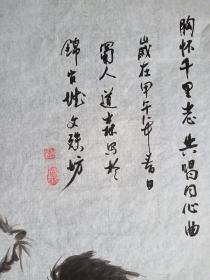 胸怀千里志 共唱同心曲
岁在甲午年春日
蜀人道森写于
锦官城文殊坊